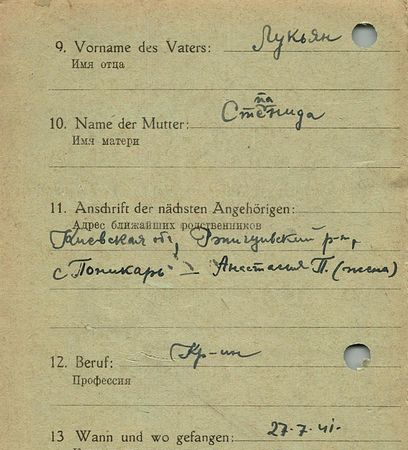 9. Vorname des Vaters: Лукьян
Имя отца
па
10. Name der Mutter: Стенида
Имя матери
11. Anschrift der nächsten Angehörigen:
Адрес ближайших родственников
Киевская об, Ржищивский р-н,
с Поникарь – Анастасия П. (жена)
12. Beruf: Кр-ин
Профессия
13 Wann und wo gefangen: 27.7.41.